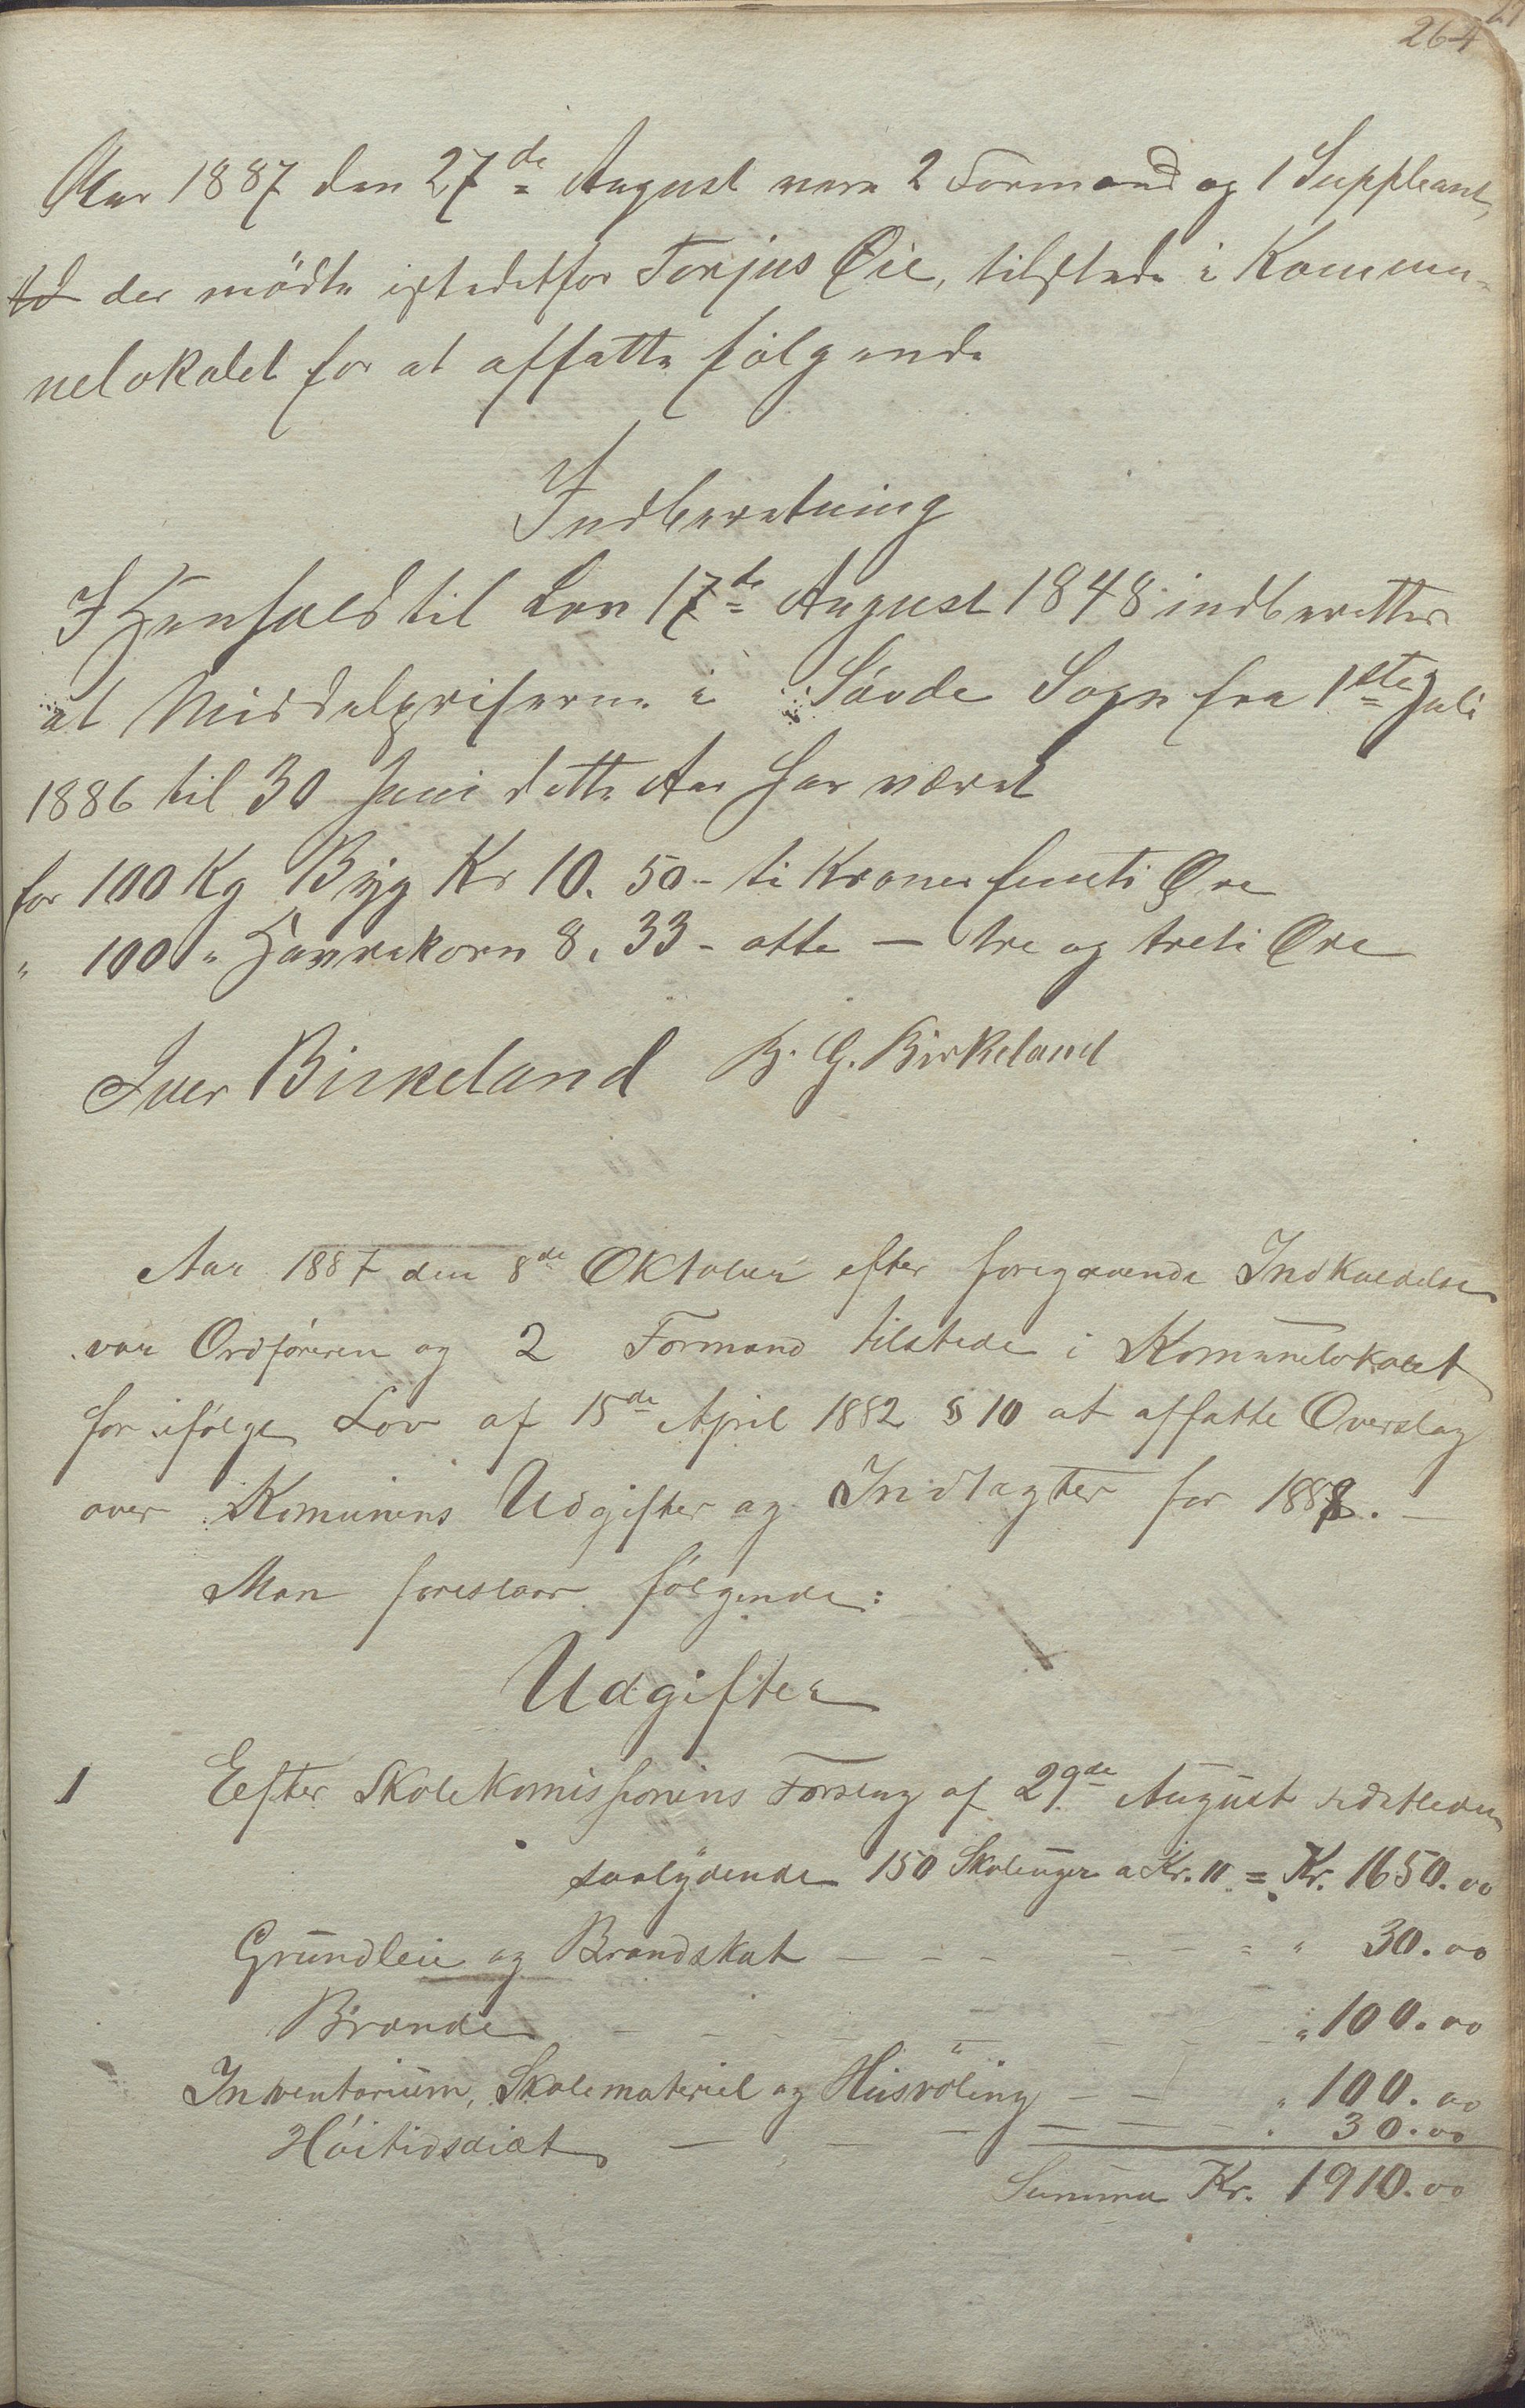 264
Aar 1887 den 27de August vare 2 Formænd og 1 Suppleant,
der mødte istedetfor Torjus Øie, tilstede i Kommu-
nelokalet for at affatte følgende
Indberetning
I Henhold til Lov 17de August 1848 indberettes
at Middelpriserne i Søvde Sogn fra 1ste Juli
1886 til 30 Juni dette Aar har været
for 100 Kg Byg Kr 10. 50 - ti Kroner femti Øre
" 100 " Havrekorn 8. 33 - otte — tre og treti Øre
Iver Birkeland B. G. Birkeland
Aar 1887 den 8de Oktober efter foregaaende Indkaldelse
var Ordføreren og 2 Formænd tilstede i Komunelokalet
for ifølge Lov af 15de April 1882 § 10 at affatte Overslag
over Komunens Udgifter og Indtægter for 1888. —
Man foreslaar følgende:
Udgifter
1 Eefter Skolekomissionens Forslag af 29de August sidstleden
saalydende 150 Skoleuger a Kr. 11 = Kr. 1650.00
Grundleie og Brandskat — — — — — " 30.00
Brænde — — — — — " 100.00
Inventarium, Skolemateriel og Husvøling — — " 100.00
Høitidsdiæt — — — — — " 30.00
Summa Kr. 1910.00